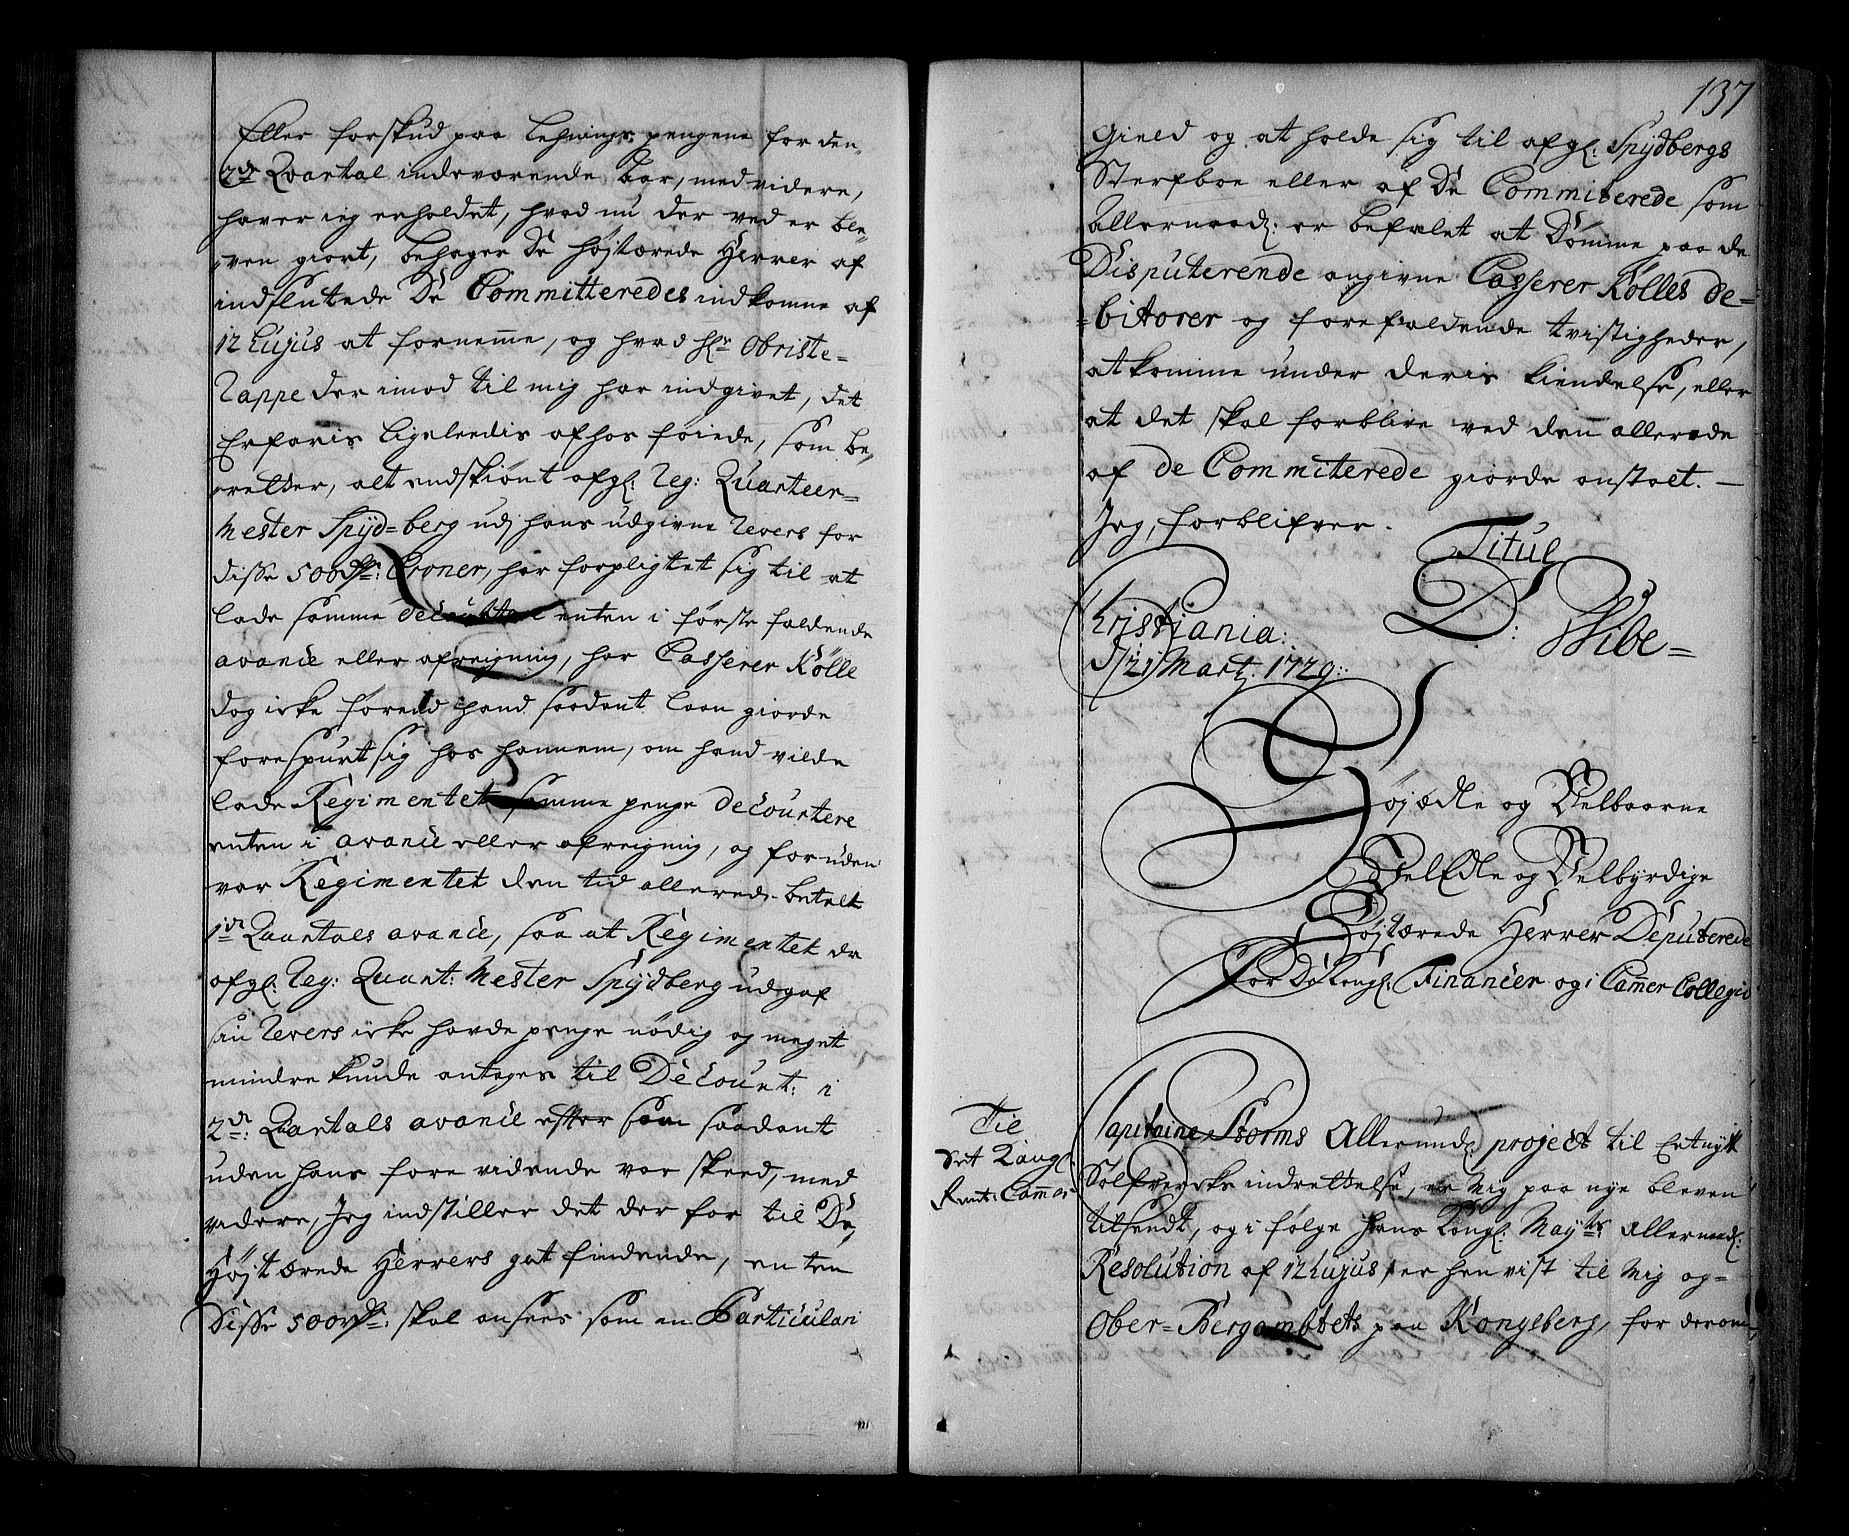 Eller forskud paa Lehnings pengene for den
2de Qvartal indeværende Aar, med videre,
haver ieg erholdet, hvad nu der ved er ble-
ven giort, behager De høiærede Herrer af
indsluttede De Committeredes indkomne af
12 hujus at fornemme, og hvad Hr Obriste-
Rappe der imod til mig har indgivet, det
Erfaris ligeleedis af hos føiede, som be-
retter, alt endskiønt afgl: Reg: Quarteer-
Mester Spydberg udj hans udgivne Revers for
disse 500 Rdr: Croner, har forpligtet sig til at
lade samme decourteere enten i første faldende
avance eller afreigning, har Casserer Kølle
dog icke førend hand saadant laan giorde
forespurt sig hos hannem, om hand vilde
lade Regimentet samme penge decourtere
enten i avance eller afreigning, og foruden
var Regimentet den tid allerede betalt
1ste Quartals avance, saa at Regimentet da
afgl: Reg: Quart: Mester Spydberg udgaf
sin Revers icke havde penge nødig og meget
mindre kunde antages til Decourt: i
2de Quartals avance efter som saadant
uden hans forevidende var skeed, med
videre, Jeg indstiller det der for til De
Højtærede Herrers gotfindende, enten
Disse 500 Rdr: skal ansees som en Particulair
137
Gield og at holde sig til afgl: Spydbergs
Sterfboe eller af De Commiterede som
allernaad: er befalet at Dømme paa de
Disputerende angivne Casserer Kølles de-
bitorer og forefaldende tvistigheder,
at komme under deris kiendelse, eller
at det skal forblive ved den allerede
af de Commiterede giorde anstalt.
Jeg, forblifver.
Titul
D: Wibe
Christiania:
d/21 Mart: 1729:
Høiædle og Velbaarne
VelEdle og Velbyrdige
Højtærede Herrer Deputerede
For De Kongl: Financer og i Camer Collegio
Til
Det Kongl:
Rente Cammer
Capitaine Storms Allerund: project til Et nyt
Sølfvercks indrettelse, er Mig paa nye bleven
tilsendt, og i følge Hans Kongl: Mayts Allernaad:
Resolution af 12 hujus, er henvist til Mig og
Ober-Bergambtets paa Kongsberg, for derom